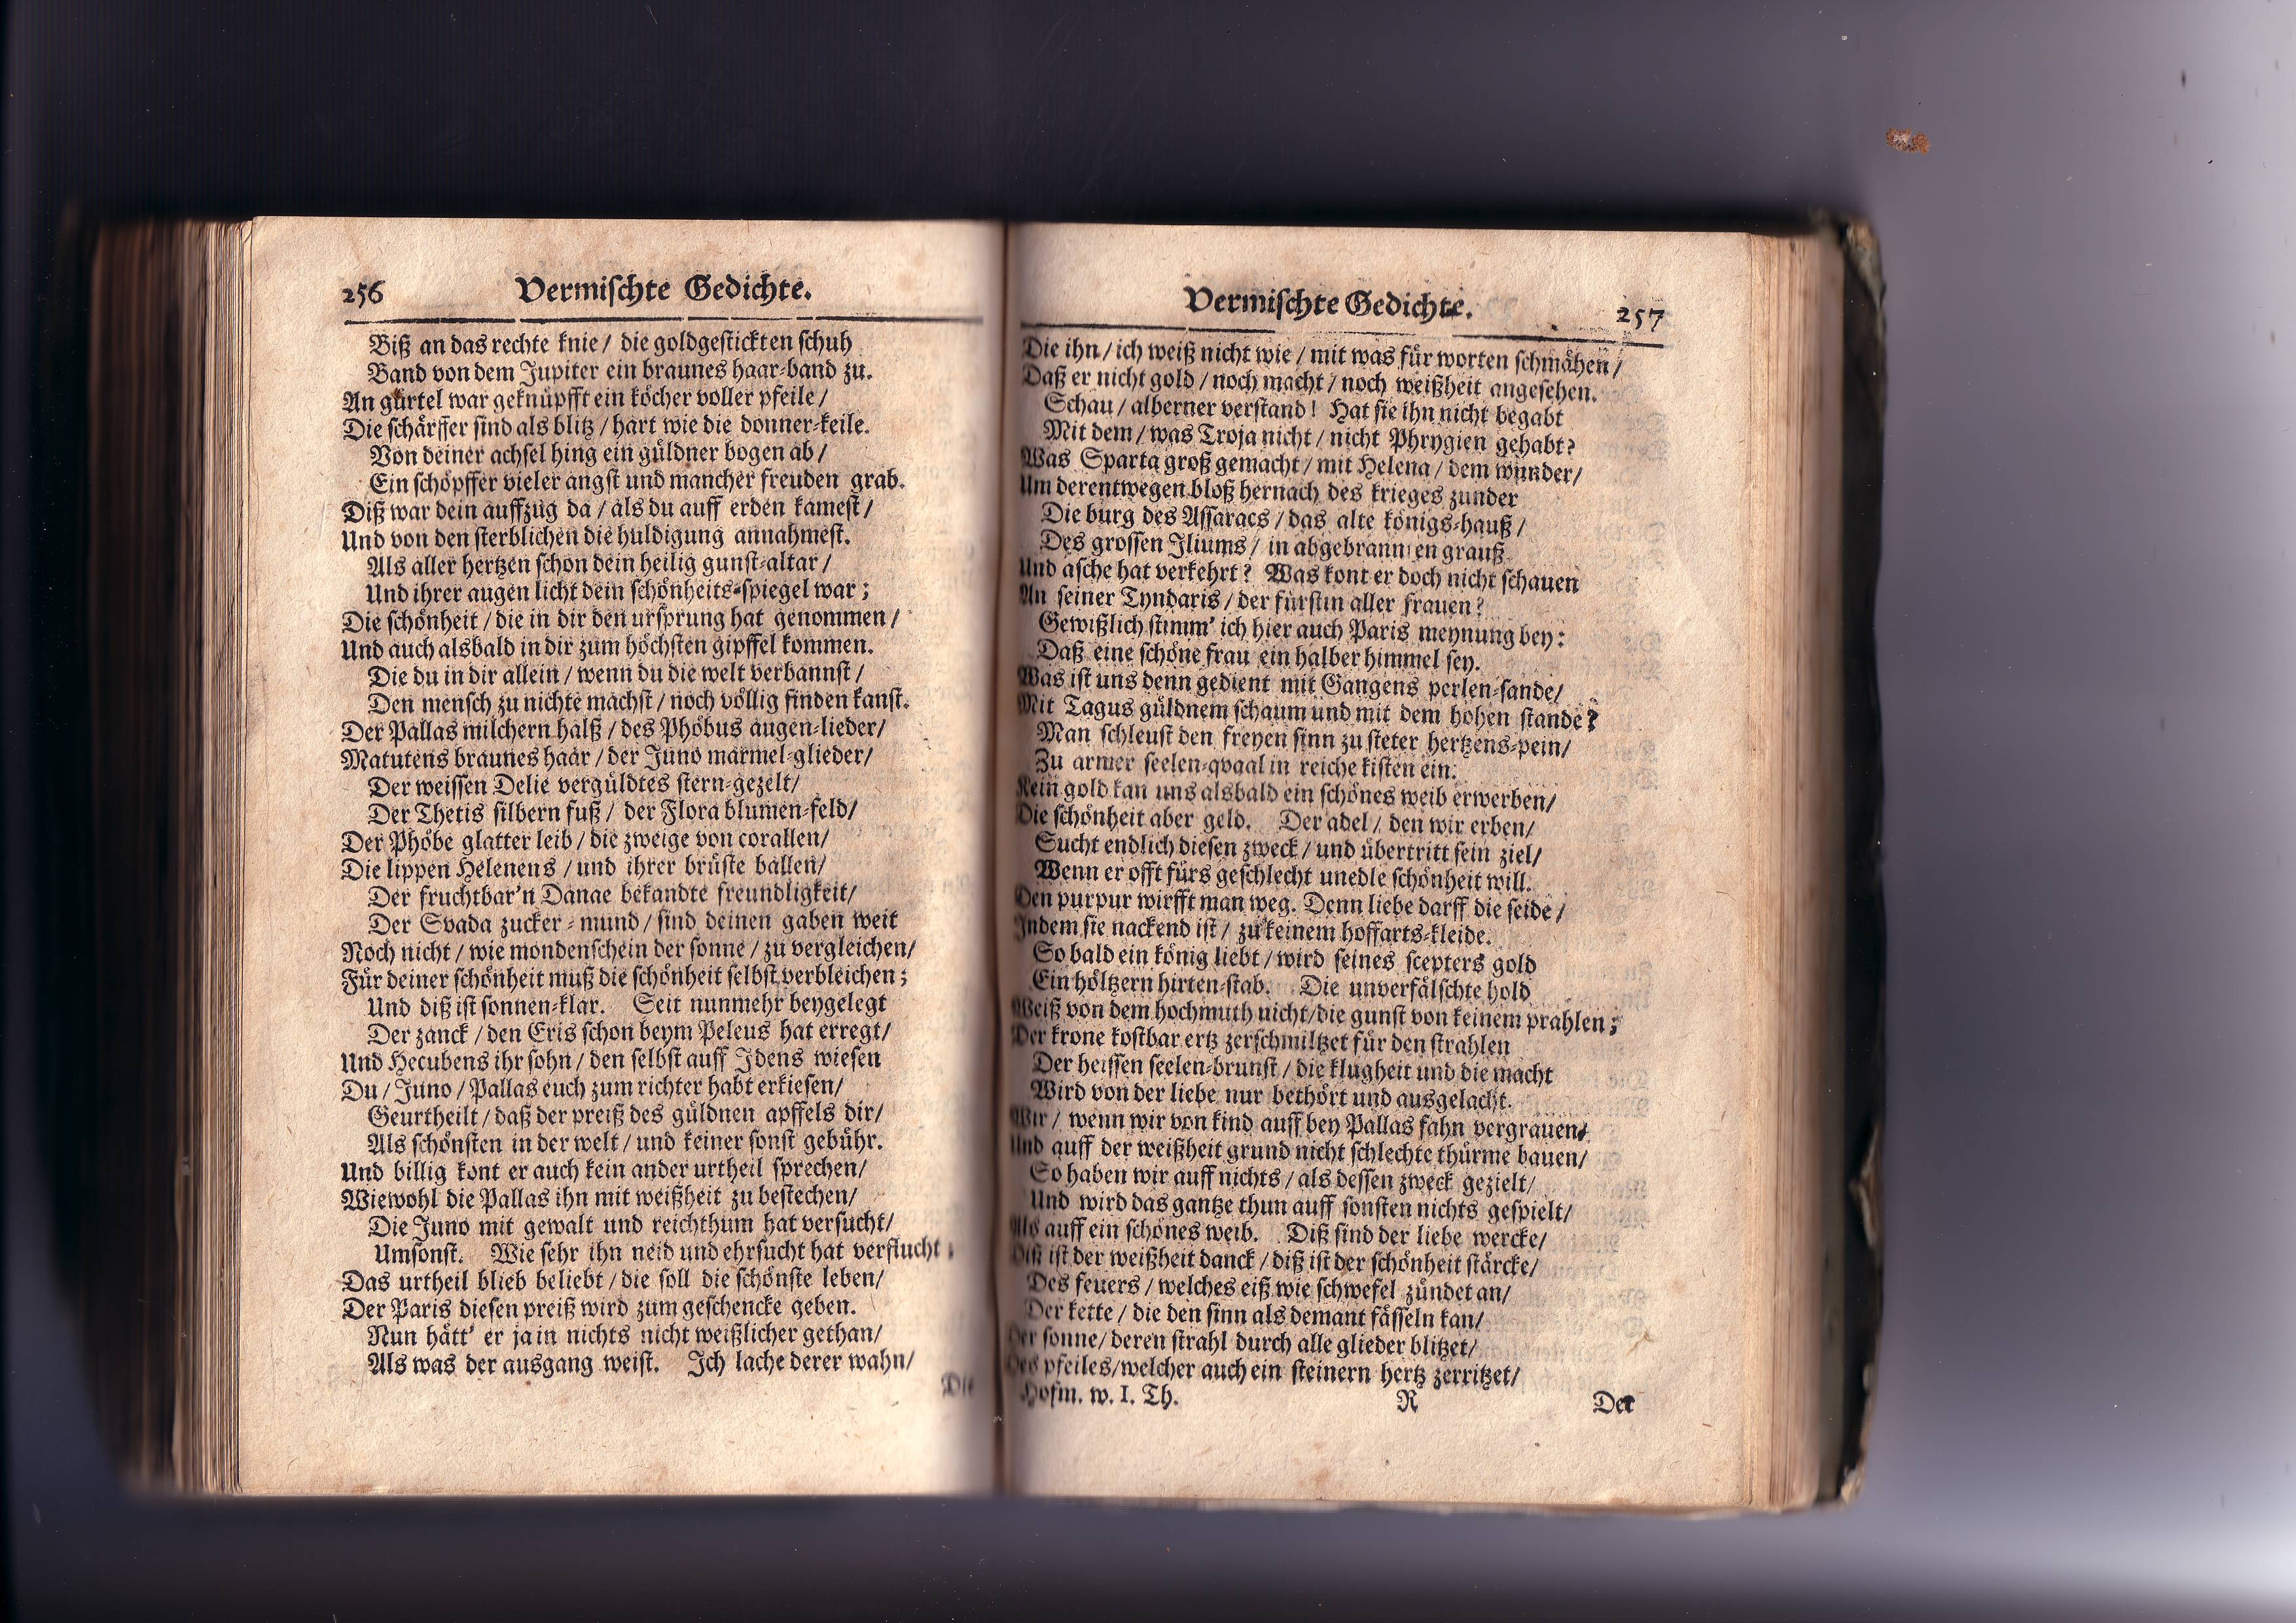 256 Vermischte Gedichte.
Biß an das rechte knie / die goldgestickten schuh
Band von dem Jupiter ein braunes haar-band zu.
An gürtel war geknüpfft ein köcher voller pfeile /
Die schärffer sind als blitz / hart wie die donner-keile.
Von deiner achsel hing ein güldner bogen ab /
Ein schöpffer vieler angst und mancher freuden grab.
Diß war dein auffzug da / als du auff erden kamest /
Und von den sterblichen die huldigung annahmest.
Als aller hertzen schon dein heilig gunst-altar /
Und ihrer augen licht dein schönheits-spiegel war ;
Die schönheit / die in dir den ursprung hat genommen /
Und auch alsbald in dir zum höchsten gipffel kommen.
Die du in dir allein / wenn du die welt verbannst /
Den mensch zu nichte machst / noch völlig finden kanst.
Der Pallas milchern halß / des Phöbus augen-lieder /
Matutens braunes haar / der Juno marmel-glieder /
Der weissen Delie vergüldtes stern-gezelt /
Der Thetis silbern fuß / der Flora blumen-feld /
Der Phöbe glatter leib / die zweige von corallen /
Die lippen Helenens / und ihrer brüste ballen /
Der fruchtbar'n Danae bekandte freundligkeit /
Der Svada zucker-mund / sind deinen gaben weit
Noch nicht / wie mondenschein der sonne / zu vergleichen /
Für deiner schönheit muß die schönheit selbst verbleichen ;
Und diß ist sonnen-klar. Seit nunmehr beygelegt
Der zanck / den Eris schon beym Peleus hat erregt /
Und Hecubens ihr sohn / den selbst auff Idens wiesen
Du / Juno / Pallas euch zum richter habt erkiesen /
Geurtheilt / daß der preiß des güldnen apffels dir /
Als schönsten in der welt / und keiner sonst gebühr.
Und billig kont er auch kein ander urtheil sprechen /
Wiewohl die Pallas ihn mit weißheit zu bestechen /
Die Juno mit gewalt und reichthum hat versucht /
Umsonst. Wie sehr ihn neid und ehrsucht hat verflucht ;
Das urtheil blieb beliebt / die soll die schönste leben /
Der Paris diesen preiß wird zum geschencke geben.
Nun hätt' er ja in nichts nicht weißlicher gethan /
Als was der ausgang weist. Ich lache derer wahn /
Die
Vermischte Gedichte. 257
Die ihn / ich weiß nicht wie / mit was für worten schmähen /
Daß er nicht gold / noch macht / noch weißheit angesehen.
Schau / alberner verstand ! Hat sie ihn nicht begabt
Mit dem / was Troja nicht / nicht Phrygien gehabt ?
Was Sparta groß gemacht / mit Helena / dem wunder /
Um derentwegen bloß hernach des krieges zunder
Die burg des Assaracs / das alte königs-hauß /
Des grossen Iliums / in abgebrannten grauß
Und asche hat verkehrt ? Was kont er doch nicht schauen
An seiner Tyndaris / der fürstin aller frauen ?
Gewißlich stimm' ich hier auch Paris meynung bey :
Daß eine schöne frau ein halber himmel sey.
Was ist uns denn gedient mit Gangens perlen-sande /
Mit Tagus güldnem schaum und mit dem hohen stande ?
Man schleust den freyen sinn zu steter hertzens-pein /
Zu armer seelen-qvaal in reiche kisten ein.
Kein gold kan uns alsbald ein schönes weib erwerben /
Die schönheit aber geld. Der adel / den wir erben /
Sucht endlich diesen zweck / und übertritt sein ziel /
Wenn er offt fürs geschlecht unedle schönheit will.
Den purpur wirfft man weg. Denn liebe darff die seide /
Indem sie nackend ist / zu keinem hoffarts-kleide.
So bald ein könig liebt / wird seines scepters gold
Ein höltzern hirten-stab. Die unverfälschte hold
Weiß von dem hochmuth nicht / die gunst von keinem prahlen ;
Der krone kostbar ertz zerschmiltzet für den strahlen
Der heissen seelen-brunst / die klugheit und die macht
Wird von der liebe nur bethört und ausgelacht.
Wir / wenn wir von kind auff bey Pallas fahn vergrauen /
Und auff der weißheit grund nicht schlechte thürme bauen /
So haben wir auff nichts / als dessen zweck gezielt /
Und wird das gantze thun auff sonsten nichts gespielt /
Als auff ein schönes weib. Diß sind der liebe wercke /
Diß ist der weißheit danck / diß ist der schönheit stärcke /
Des feuers / welches eiß wie schwefel zündet an /
Der kette / die den sinn als demant fässeln kan /
Der sonne / deren strahl durch alle glieder blitzet /
Des pfeiles / welcher auch ein steinern hertz zerritzet /
Hofm. w. I. Th. R Der